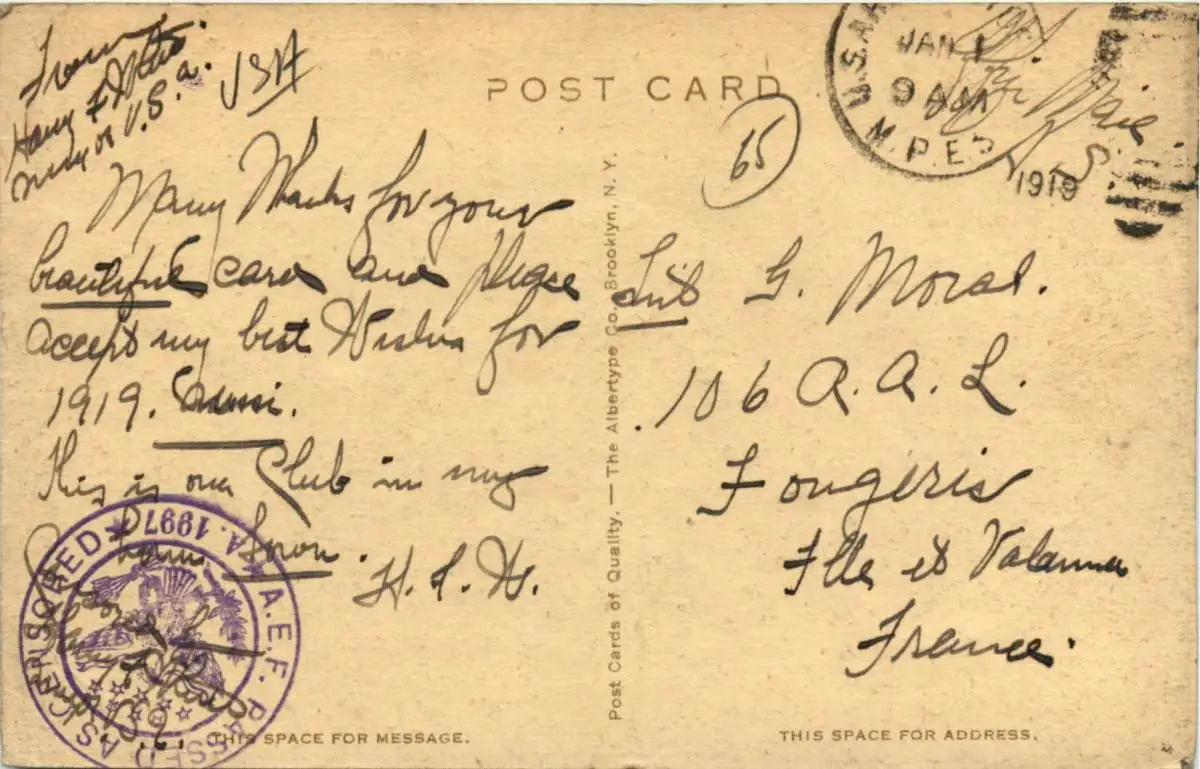 From
Harry F
U.S.a.
USA
POST CARD
U.S. AR
JAN 1
9 AM
M.P.E.S
1919
65
Many Thanks for your
beautiful card and please
accept my best Wishes for
1919.
This is our Club in my
H. F. W.
Lieut G. Moral.
106 A. A. L.
Fougeris
Ille et Valanna
France.
Post Cards of Quality. — The Albertype Co., Brooklyn, N. Y.
A.E.F. PASSED AS CENSORED
A. 1997
THIS SPACE FOR MESSAGE.
THIS SPACE FOR ADDRESS.